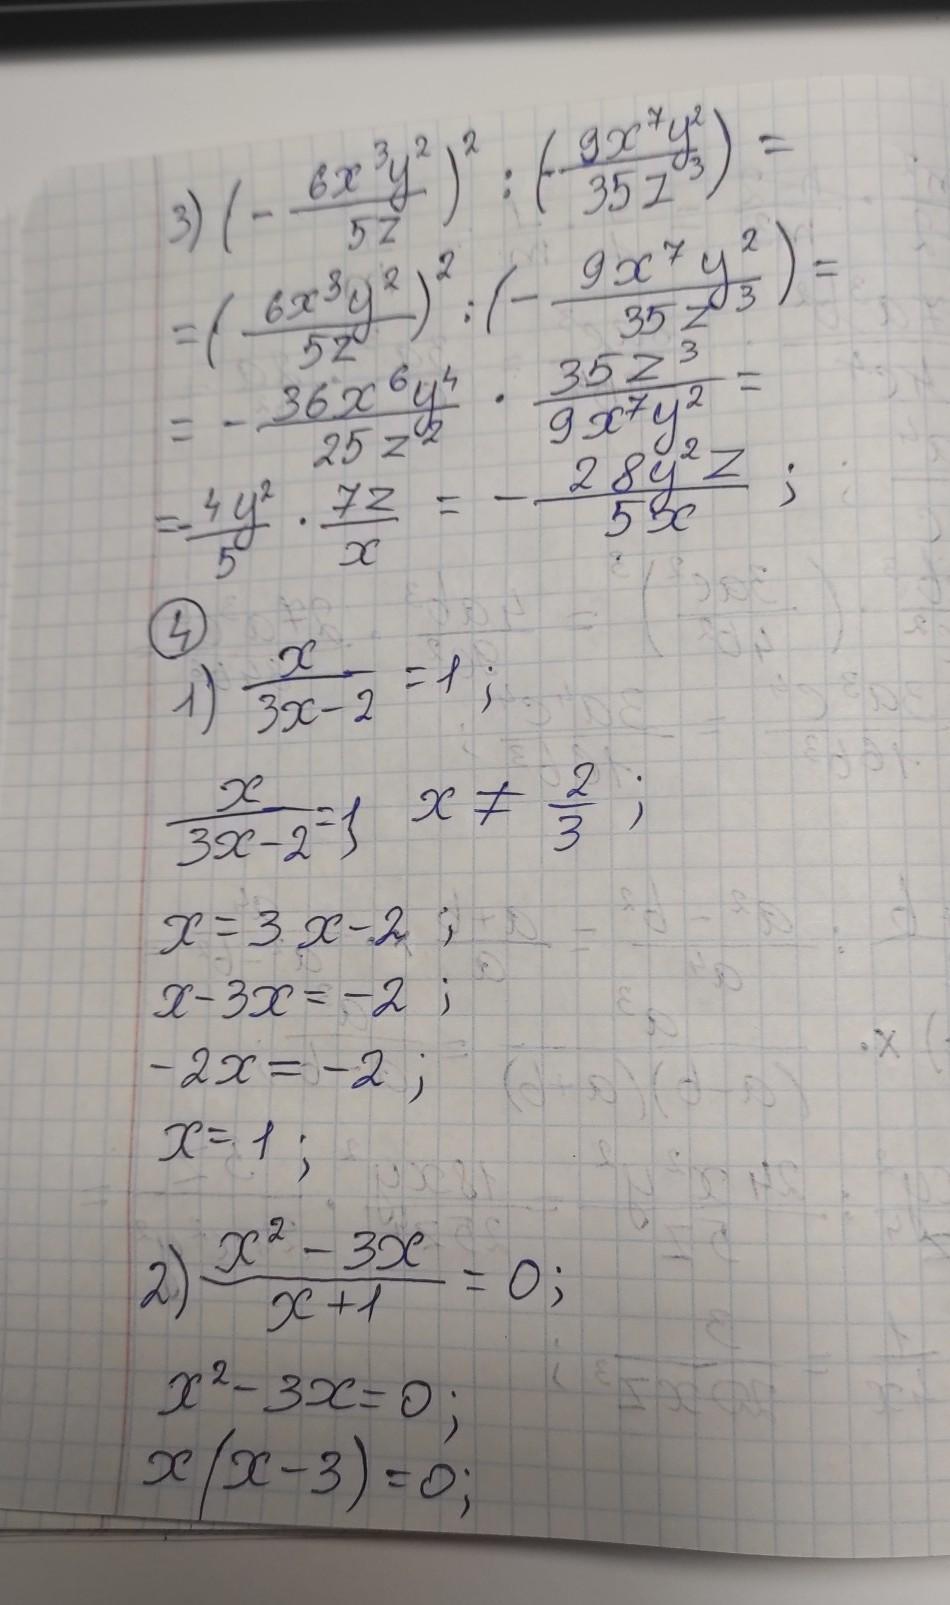 3) (- 6x³y²/5z)² : (- 9x⁷y²/35z³) =
= (6x³y²/5z)² : (- 9x⁷y²/35z³) =
= - 36x⁶y⁴/25z² · 35z³/9x⁷y² =
= - 4y²/5 · 7z/x = - 28y²z/5x ;
④
1) x/3x-2 = 1 ;
x/3x-2 = 1, x ≠ 2/3 ;
x = 3x - 2 ;
x - 3x = -2 ;
-2x = -2 ;
x = 1 ;
2) x² - 3x/x+1 = 0 ;
x² - 3x = 0 ;
x(x-3) = 0 ;